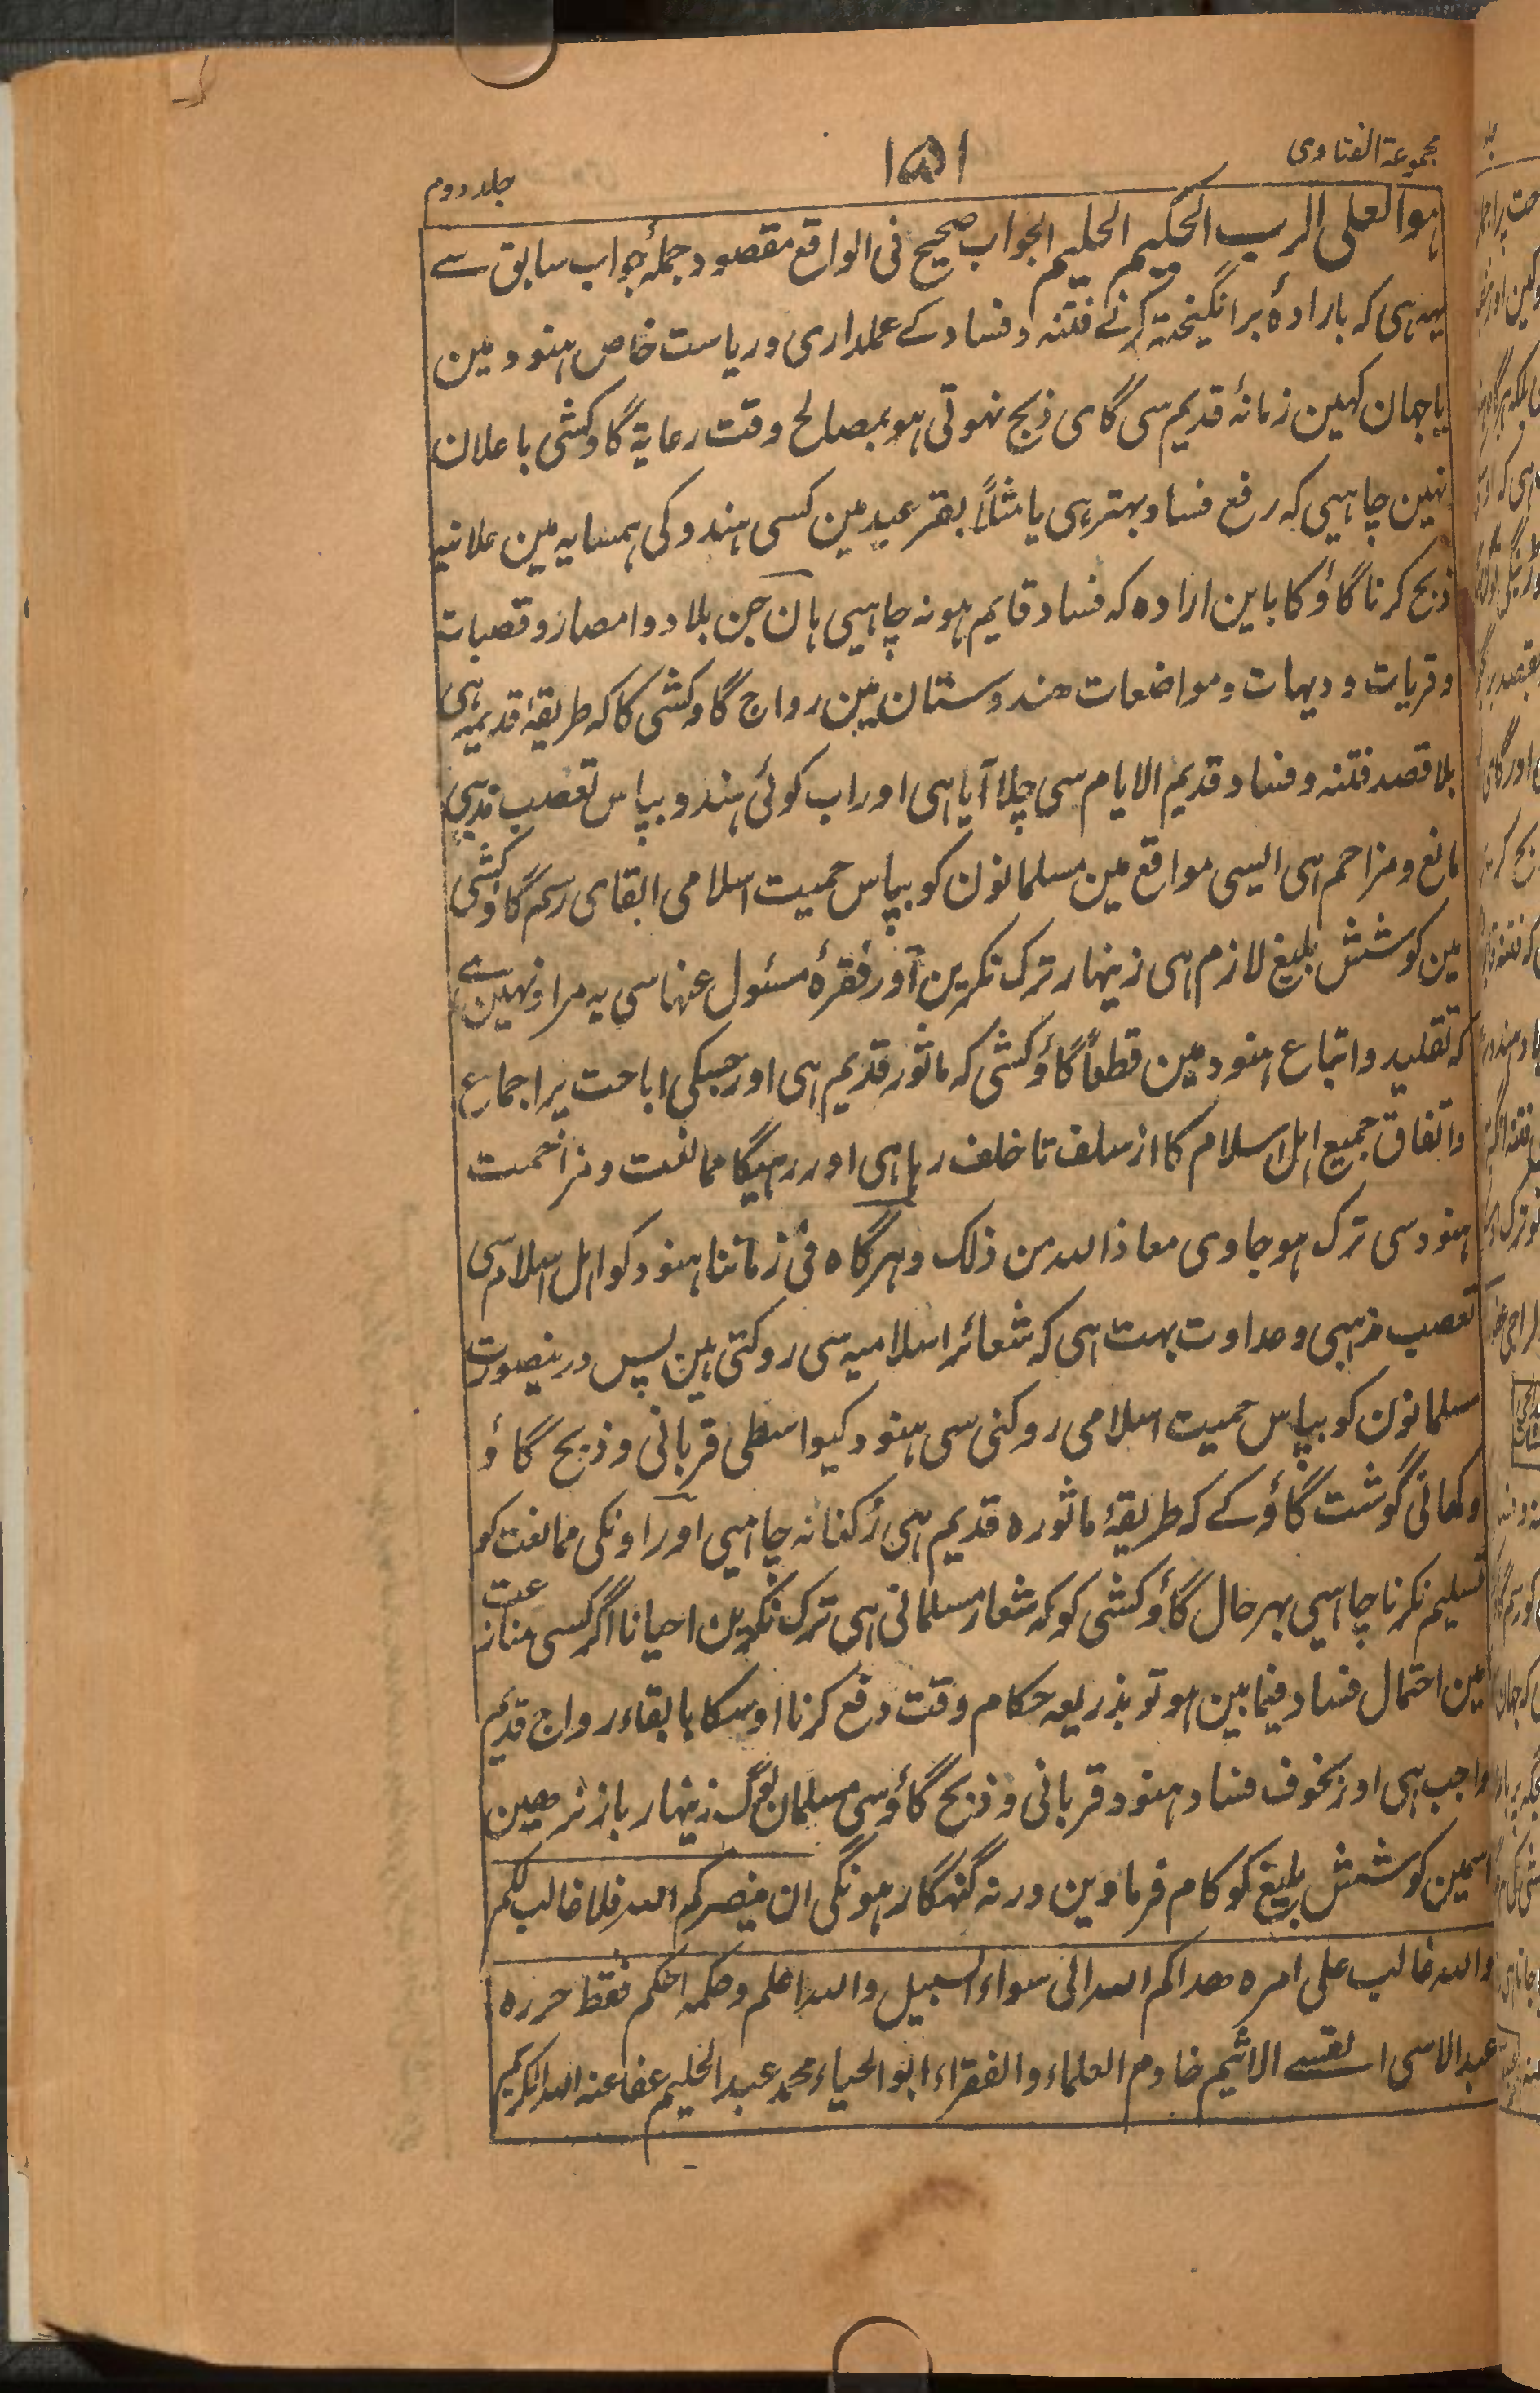 مجموعۃ الفتاوی
۱۵۱
جلد دوم
ہو العلی الرب الحکیم الحلیم الجواب صحیح فی الواقع مقصود جملۂ جواب سابق سے
یہہ ہی کہ بارادۂ برانگیختہ کرنے فتنہ و فساد کے عملداری و ریاست خاص ہنود مین
یا جہان کہین زمانۂ قدیم سی گای ذبح نہوتی ہو بمصالح وقت رعایۃ گاوکشی باعلان
نہین چاہیی کہ رفع فساد بہتر ہی یا مثلاً بقر عید مین کسی ہندو کی ہمسایہ مین علانیہ
ذبح کرنا گاؤ کا باین ارادہ کہ فساد قایم ہو نہ چاہیی ہان جن بلاد و امصار و قصبات
و قریات و دیہات و مواضعات ھندوستان مین رواج گاوکشی کا کہ طریقۂ قدیمہ ہی
بلا قصد فتنہ و فساد قدیم الایام سی چلا آیا ہی اور اب کوئی ہندو بپاس تعصب مذہبی
مانع و مزاحم ہی ایسی مواقع مین مسلمانون کو بپاس حمیت اسلامی ابقای رسم گاوکشی
مین کوشش بلیغ لازم ہی زینہار ترک نکرین اور فقرۂ مسئول عنہا سی یہ مراد نہین ہے
کہ تقلید و اتباع ہنود مین قطعاً گاؤکشی کہ ماثور قدیم ہی اور جسکی اباحت پر اجماع
و اتفاق جمیع اہل اسلام کا از سلف تا خلف رہا ہی اور رہیگا ممانعت و مزاحمت
ہنود سی ترک ہو جاوی معاذ اللہ من ذلک و ہرگاہ فی زماننا ہنود کو اہل اسلام سی
تعصب مذہبی و عداوت بہت ہی کہ شعائر اسلامیہ سی روکتی ہین پس درینصورت
مسلمانون کو بپاس حمیت اسلامی روکنی سی ہنود کیواسطی قربانی و ذبح گاؤ
و کھانی گوشت گاؤ کے کہ طریقۂ ماثورہ قدیم ہی رُکنا نہ چاہیی اور اونکی ممانعت کو
تسلیم نکرنا چاہیی بہرحال گاؤکشی کو کہ شعار مسلمانی ہی ترک نکرین احیانا اگر کسی منازعت
مین احتمال فساد فیمابین ہو تو بذریعہ حکام وقت دفع کرنا اوسکا بابقاء رواج قدیم
واجب ہی اور بخوف فساد ہنود قربانی و ذبح گاؤ سی مسلمان لوگ زینہار باز نرہین
اسمین کوشش بلیغ کو کام فرماوین ورنہ گنہگار ہونگی ان ینصرکم اللہ فلا غالب لکم
واللہ غالب علی امرہ ھداکم اللہ الی سواء السبیل واللہ اعلم وحکمہ احکم فقط حررہ
عبدالاسی الاثیم خادم العلماء والفقراء ابو الحیاء محمد عبد الحلیم عفا عنہ اللہ الکریم